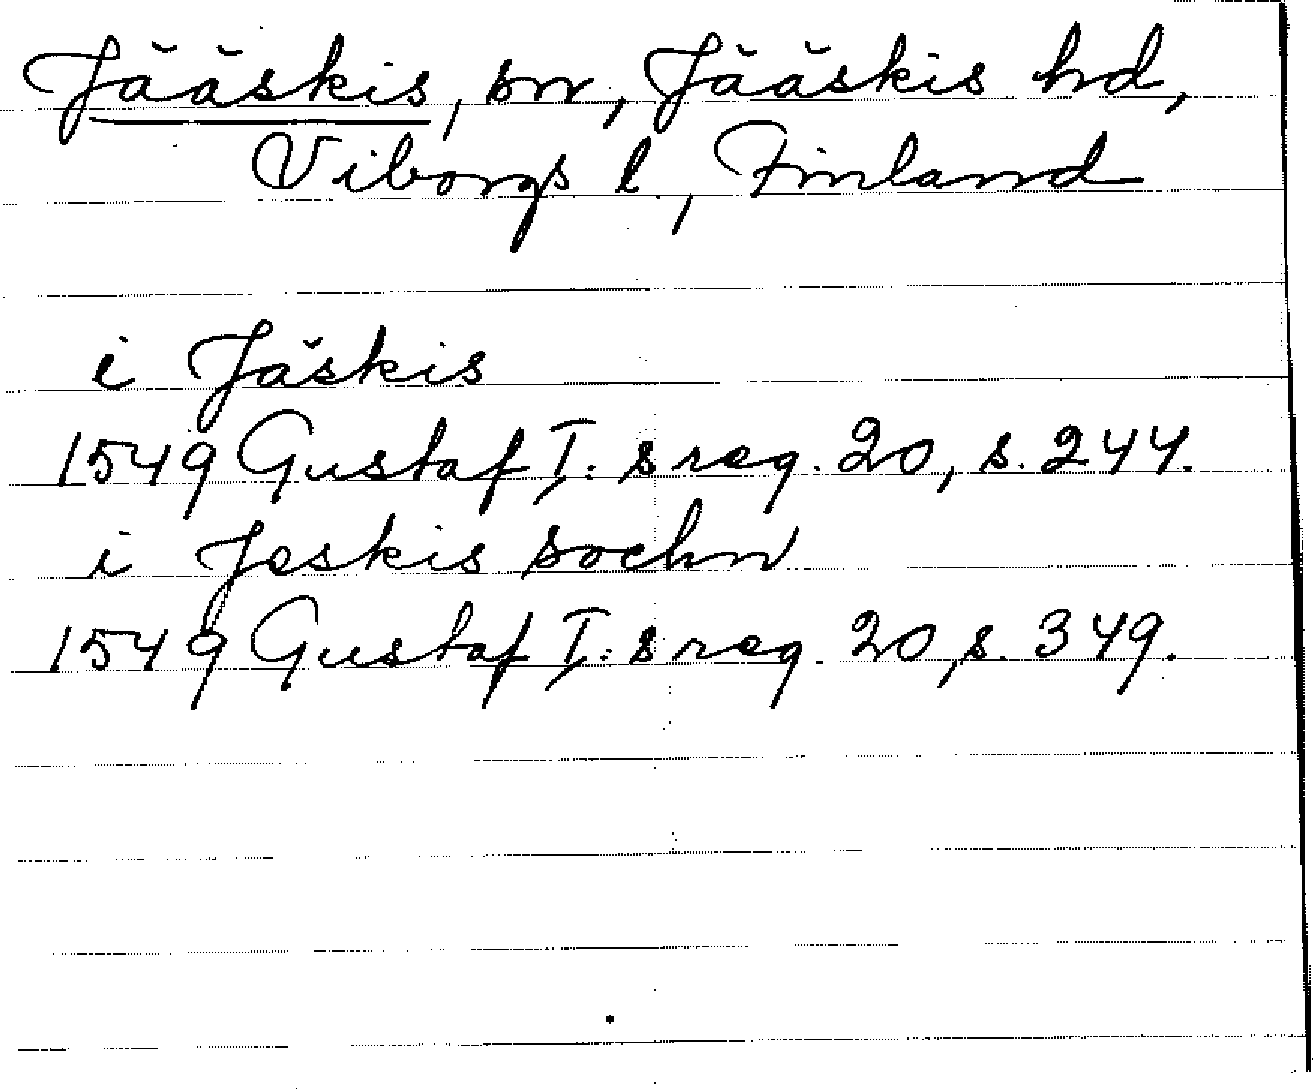 Jääskis, sn, Jääskis hd,
Viborgs l, Finland
i Jäskis
1549 Gustaf I:s reg. 20, s. 244.
i Jeskis sochn
1549 Gustaf I:s reg. 20, s. 349.